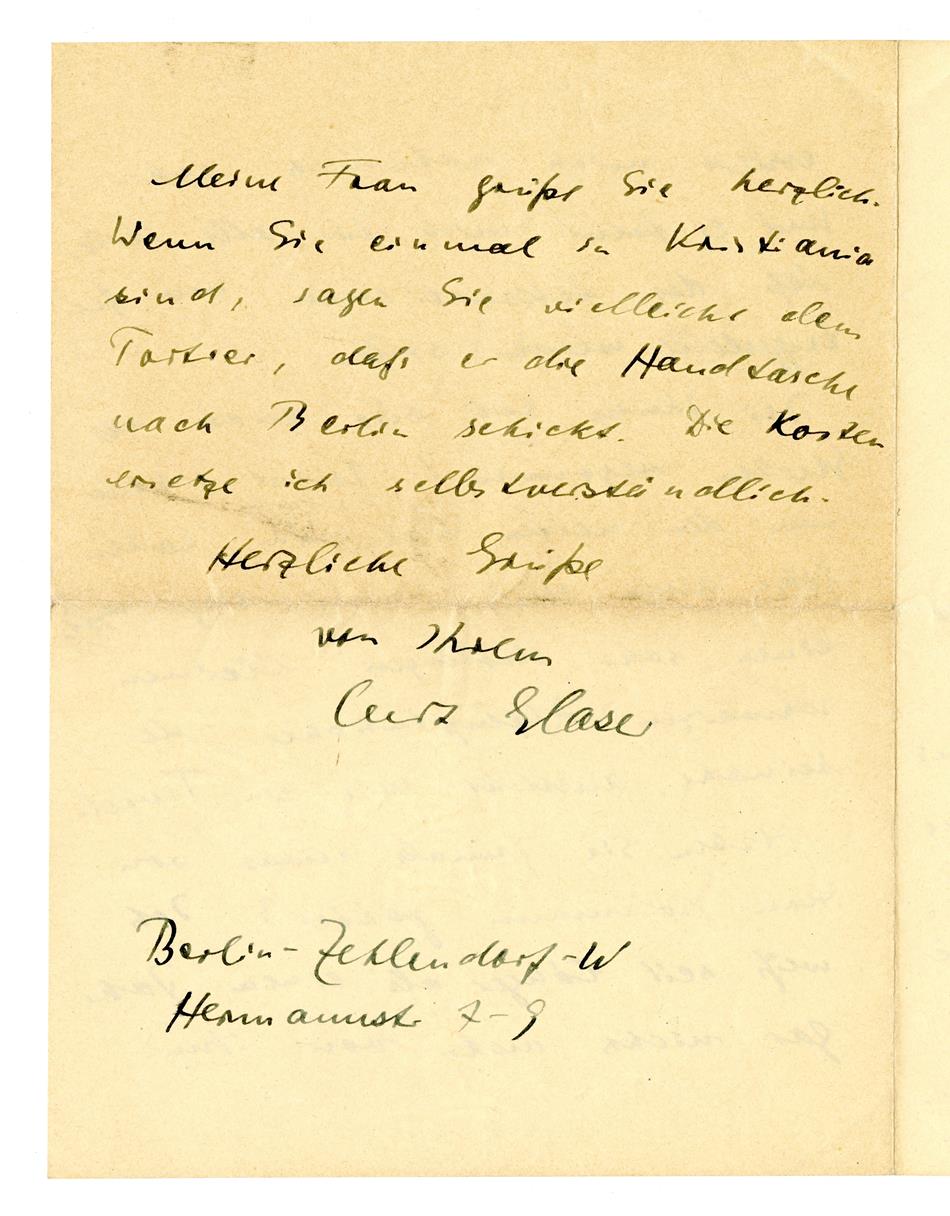 Meine Frau grüßt Sie herzlich.
Wenn Sie einmal in Kristiania
sind, sagen Sie vielleicht dem
Portier, daß er die Handtasche
nach Berlin schickt. Die Kosten
ersetze ich selbstverständlich.
Herzliche Grüße
von Ihrem
Curt Glaser
Berlin-Zehlendorf-W
Hermannstr. 7-9